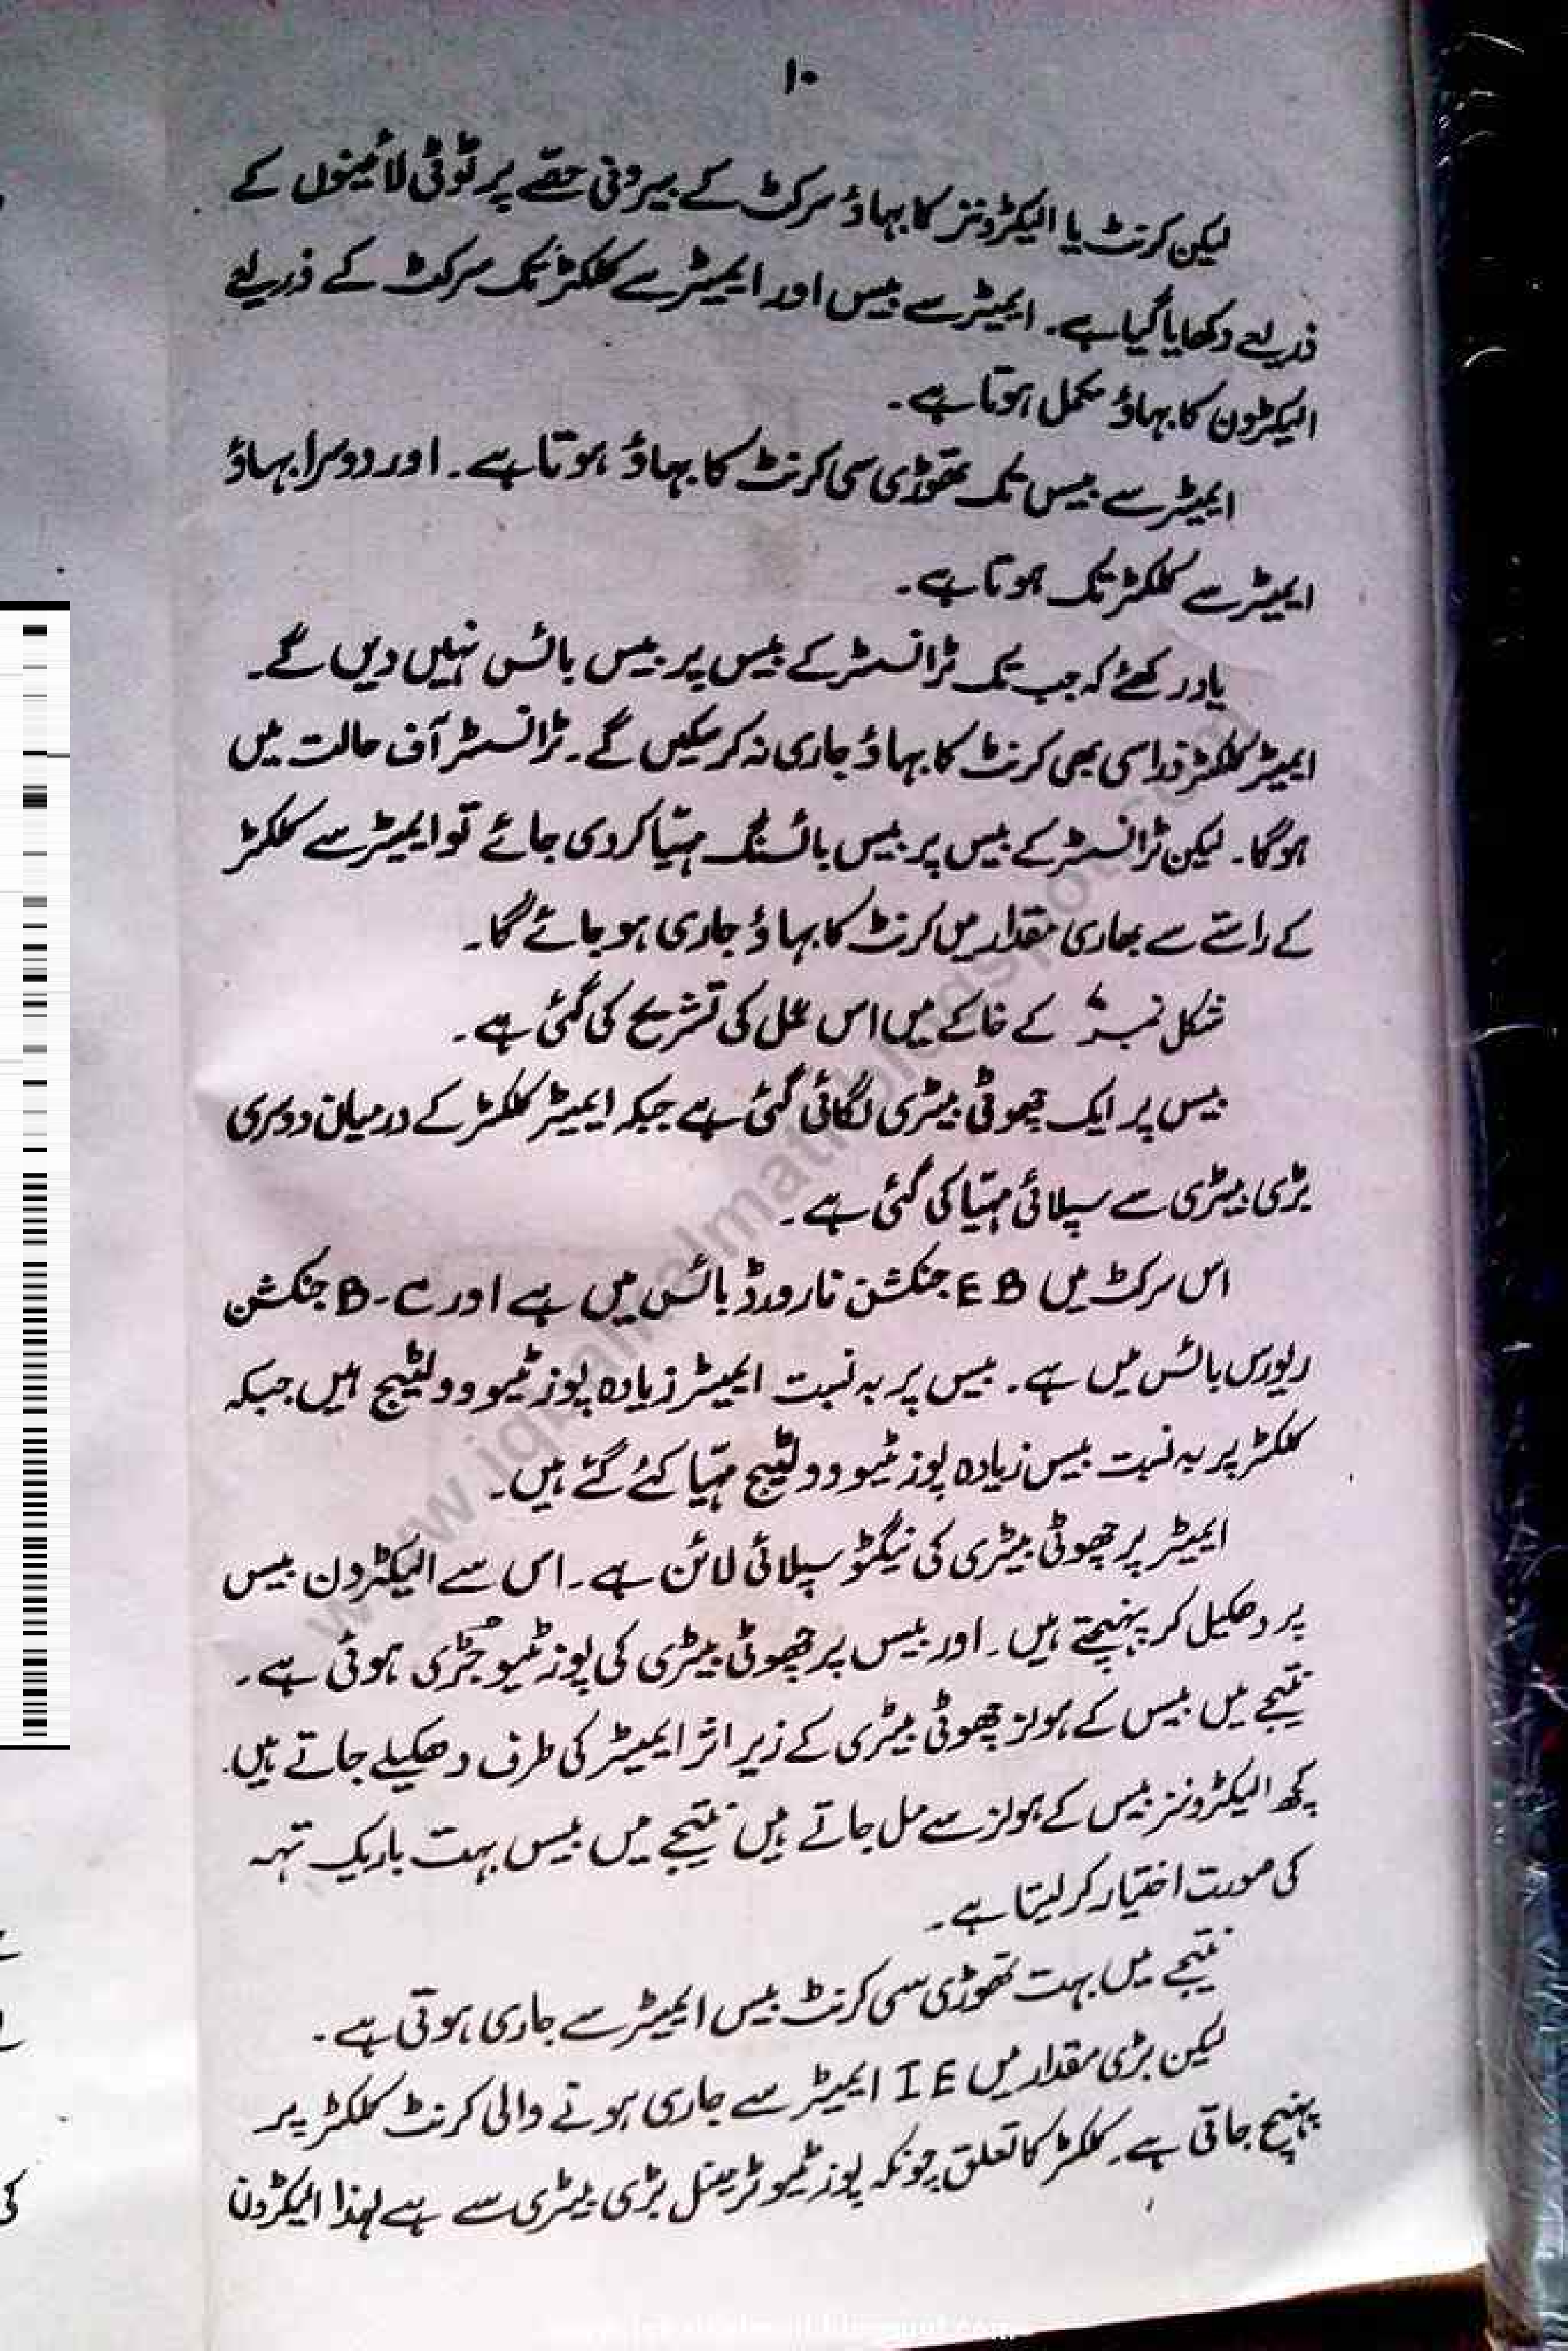 ۱۰
لیکن کرنٹ یا الیکٹرونز کا بہاؤ سرکٹ کے بیرونی حصّے پر ٹوٹی لائینوں کے
ذریعے دکھایا گیا ہے۔ ایمیٹر سے بیس اور ایمیٹر سے کلکٹر تک سرکٹ کے ذریعے
الیکٹرون کا بہاؤ مکمل ہوتا ہے۔
ایمیٹر سے بیس تک تھوڑی سی کرنٹ کا بہاؤ ہوتا ہے۔ اور دوسرا بہاؤ
ایمیٹر سے کلکٹر تک ہوتا ہے۔
یاد رکھئے کہ جب تک ٹرانسسٹر کے بیس پر بیس بائس نہیں دیں گے۔
ایمیٹر کلکٹر ذرا سی بھی کرنٹ کا بہاؤ جاری نہ کر سکیں گے۔ ٹرانسسٹر آف حالت میں
ہوگا۔ لیکن ٹرانسسٹر کے بیس پر بیس بائسنگ مہیّا کر دی جائے تو ایمیٹر سے کلکٹر
کے راستے سے بھاری مقدار میں کرنٹ کا بہاؤ جاری ہو جائے گا۔
شکل نمبر کے خاکے میں اس عمل کی تشریح کی گئی ہے۔
بیس پر ایک چھوٹی بیٹری لگائی گئی ہے جبکہ ایمیٹر کلکٹر کے درمیان دوسری
بڑی بیٹری سے سپلائی مہیّا کی گئی ہے۔
اس سرکٹ میں EB جنکشن فارورڈ بائس میں ہے اور B-C جنکشن
ریورس بائس میں ہے۔ بیس پر بہ نسبت ایمیٹر زیادہ پوزیٹیو وولٹیج ہیں جبکہ
کلکٹر پر بہ نسبت بیس زیادہ پوزیٹیو وولٹیج مہیّا کئے گئے ہیں۔
ایمیٹر پر چھوٹی بیٹری کی نیگٹو سپلائی لائن ہے۔ اس سے الیکٹرون بیس
پر دھکیل کر پہنچتے ہیں۔ اور بیس پر چھوٹی بیٹری کی پوزیٹیو جڑی ہوئی ہے۔
نتیجے میں بیس کے ہولز چھوٹی بیٹری کے زیر اثر ایمیٹر کی طرف دھکیلے جاتے ہیں۔
کچھ الیکٹرونز بیس کے ہولز سے مل جاتے ہیں نتیجے میں بیس بہت باریک تہہ
کی صورت اختیار کر لیتا ہے۔
نتیجے میں بہت تھوڑی سی کرنٹ بیس ایمیٹر سے جاری ہوتی ہے۔
لیکن بڑی مقدار میں IE ایمیٹر سے جاری ہونے والی کرنٹ کلکٹر پر
پہنچ جاتی ہے۔ کلکٹر کا تعلق چونکہ پوزیٹیو ٹرمینل بڑی بیٹری سے ہے لہذا الیکٹرون